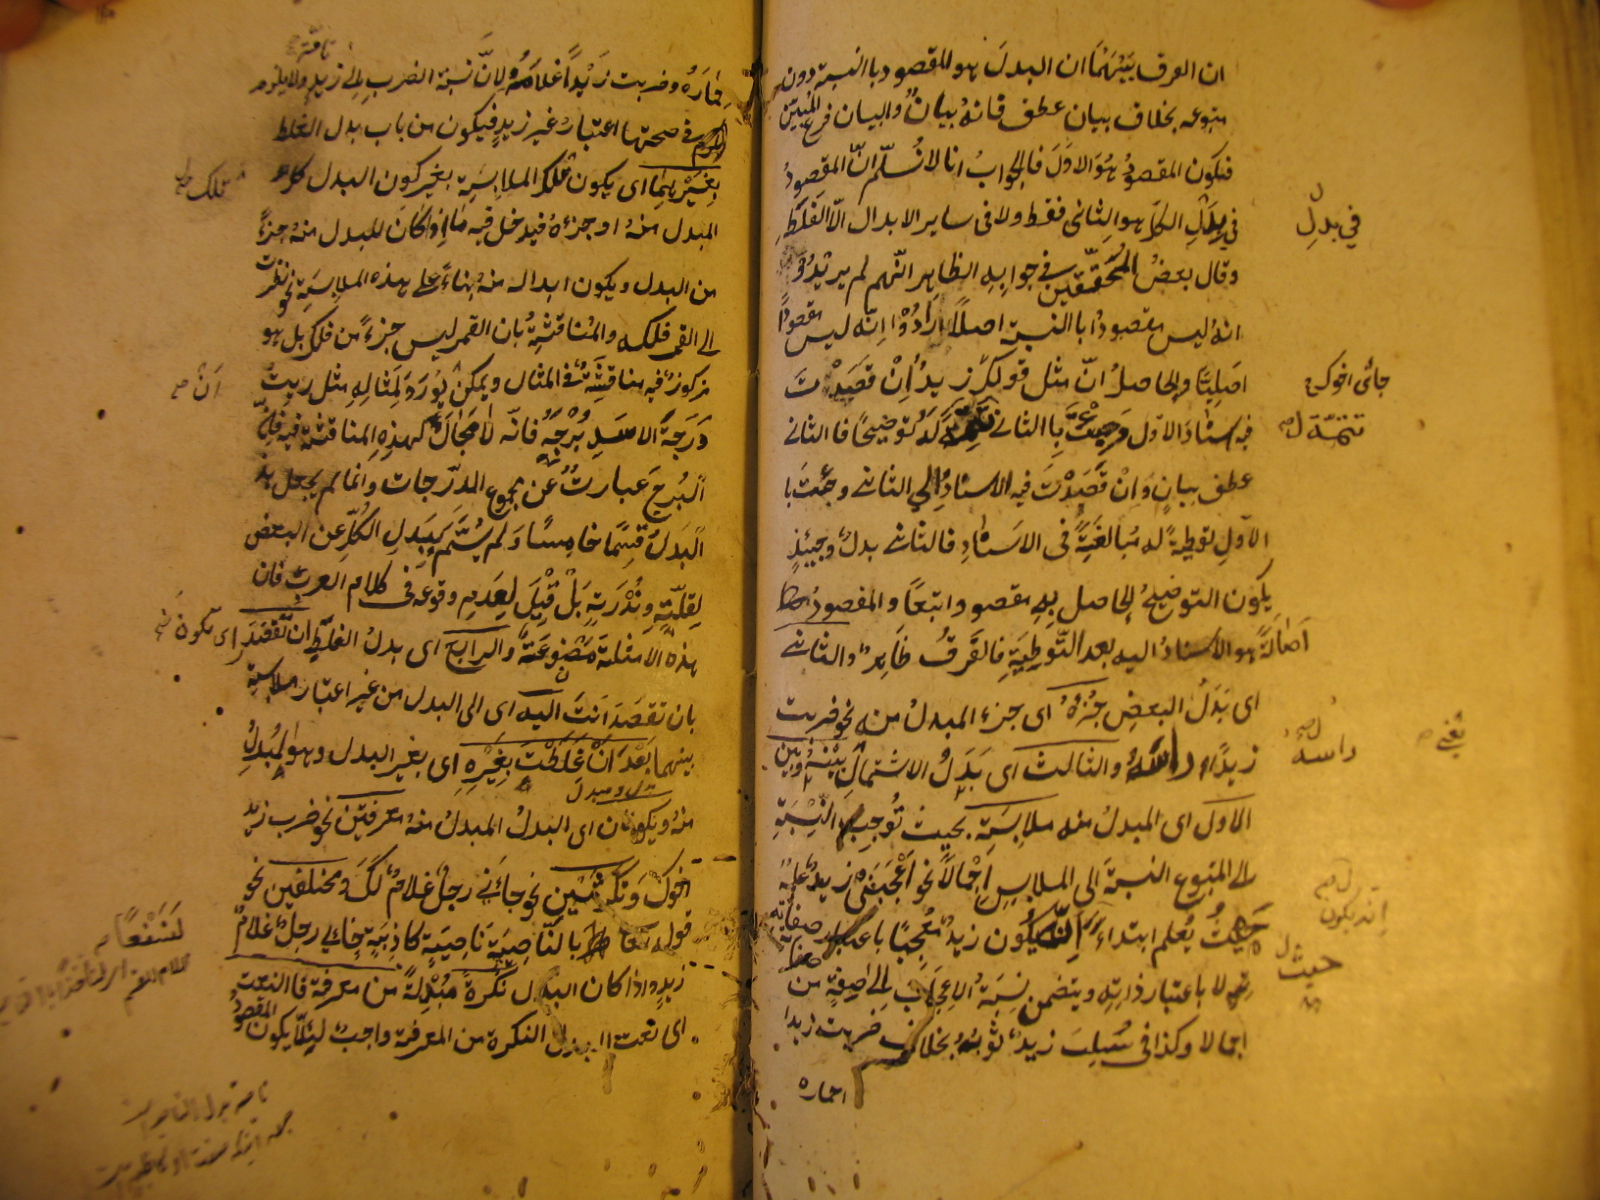 ان الفرق بينهما ان البدل هو المقصود بالنسبة دون
متبوعه بخلاف بيان عطف فانه بيان والبيان فرع المبين
فيكون المقصود هو الاول فالجواب انا لا نسلم ان المقصود
في بدل الكل هو الثاني فقط ولا في ساير الابدال الا الغلط
في بدل
وقال بعض المحققين في جوابه الظاهر انهم لم يريدوا
انه ليس مقصودا بالنسبة اصلا ارادوا انه ليس مقصودا
اصليا والحاصل ان مثل قولك زيد ان قصدت
جائي اخوك
فيه اسناد الاول وجئت بالثاني تتمة له توضيحا فالثاني
تتمة له
عطف بيان وان قصدت فيه الاسناد الي الثاني وجئت با
الاول توطية له مبالغة في الاسناد فالثاني بدل وحينئذ
يكون التوضيح الحاصل به مقصودا تبعا والمقصود
اصالة هو الاسناد اليه بعد التوطية فالفرق ظاهر والثاني
اي بدل البعض جزؤه اي جزء المبدل منه نحو ضربت
زيدا راسه والثالث اي بدل الاشتمال بينه وبين
راسه
يعني
الاول اي المبدل منه ملابسة بحيث توجب النسبة
الي المتبوع النسبة الي الملابس اجمالا نحو اعجبني زيد علمه
حيث يعلم ابتداء يكون زيد معجبا باعتبار صفاته
انه يكون
حيث
لا باعتبار ذاته ويتضمن نسبة الاعجاب الي صفة من صفاته
اجمالا وكذا في سلب زيد ثوبه بخلاف ضربت زيدا
حماره
حماره وضربت زيدا غلامه لان نسبة الضرب الي زيد ولا يلزم
في صحتها اعتبار غير زيد فيكون من باب بدل الغلط
بغيرهما اي يكون تلك الملابسة بغير كون البدل كل
تلك
المبدل منه او جزءه فيدخل فيه ما اذا كان المبدل منه جزءا
من البدل ويكون ابداله منه بناء علي هذه الملابسة نحو نظرت
الي القمر فلكه والمناقشة بان القمر ليس جزءا من فلكه بل هو
مركوز فيه مناقشة في المثال ويمكن يورد لمثاله مثل رايت
ان
درجة الاسد برجه فانه لا مجال لهذه المناقشة فيه فان
البرج عبارت عن مجموع الدرجات وانما لم يجعل هذا
البدل قسما خامسا ولم يسم ببدل الكل عن البعض
لقلته وندرته بل قيل لعدم وقوعه في كلام العرب فان
هذه الامثلة مصنوعة والرابع اي بدل الغلط ان تقصد اي يكون
بان تقصد انت اليه اي الي البدل من غير اعتبار ملابسة
بينهما بعد ان غلطت بغيره اي بغير البدل وهو المبدل
منه ويكونان اي البدل المبدل منه معرفتين نحو ضرب زيد
اخوك ونكرتين نحو جاءني رجل غلام لك ومختلفين نحو
قوله بالناصية ناصية كاذبة جاءني رجل غلام
لنسفعا
زيد واذا كان البدل نكرة مبدلة من معرفة فالنعت
اي نعت البدل النكرة من المعرفة واجب لئلا يكون المقصود